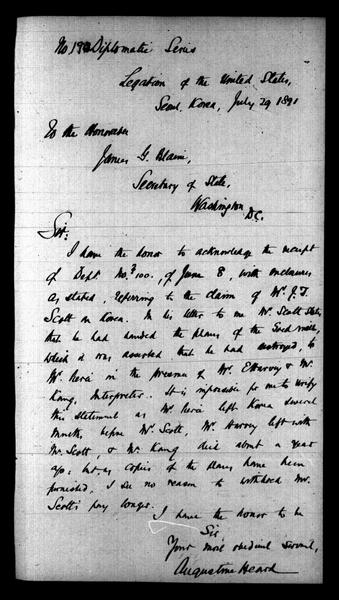 No 192 Diplomatic Series
Legation of the United States,
Seoul, Korea, July 29 1891
To the Honorable
James G. Blaine,
Secretary of State,
Washington D.C.
Sir:
I have the honor to acknowledge the receipt
of Dept. No. 100, of June 8, with enclosures
as stated, referring to the claim of Mr. J. F.
Scott on Korea. In his letter to me Mr. Scott states
that he had handed the plans of the
which it was asserted that he had destroyed, to
Mr. in the presence of Mr. Harvey & Mr.
Kang, Interpreter. It is impossible for me to verify
this statement as Mr. left Korea several
months before Mr. Scott, Mr. Harvey left with
Mr. Scott, & Mr. Kang died about a year
ago; but as copies of the plans have been
furnished, I see no reason to withhold Mr.
Scott's pay longer.
I have the honor to be
Sir,
Your most obedient servant,
Augustine Heard